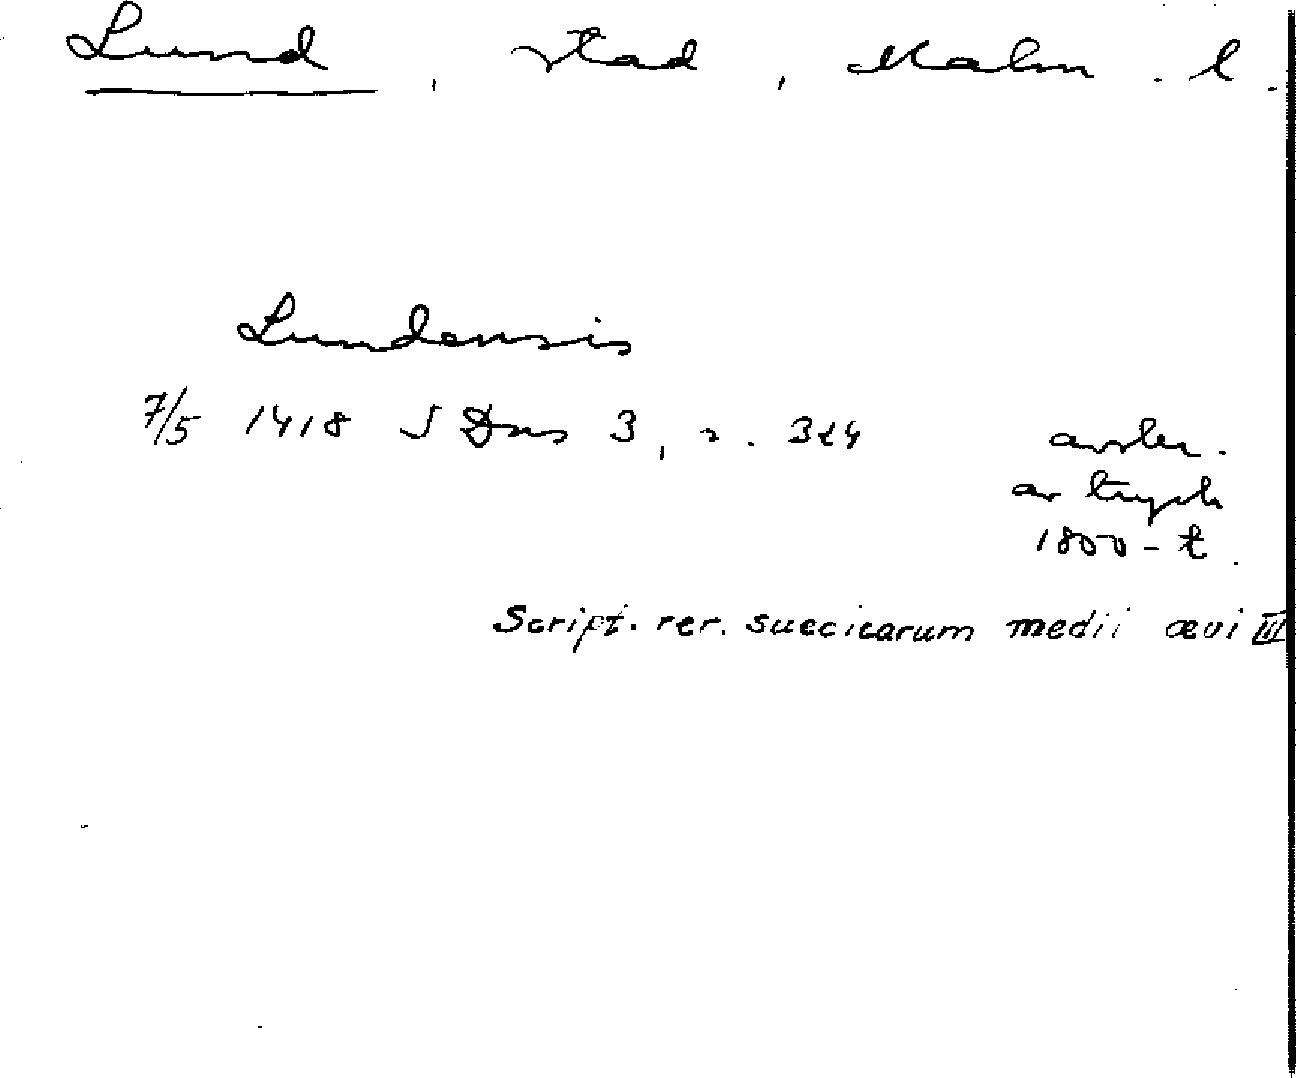 Lund, stad, Malm. l.
Lundensis
7/5 1418 SDns 3, s. 324 avskr.
av tryck
1800-t.
Script. rer. suecicarum medii ævi III